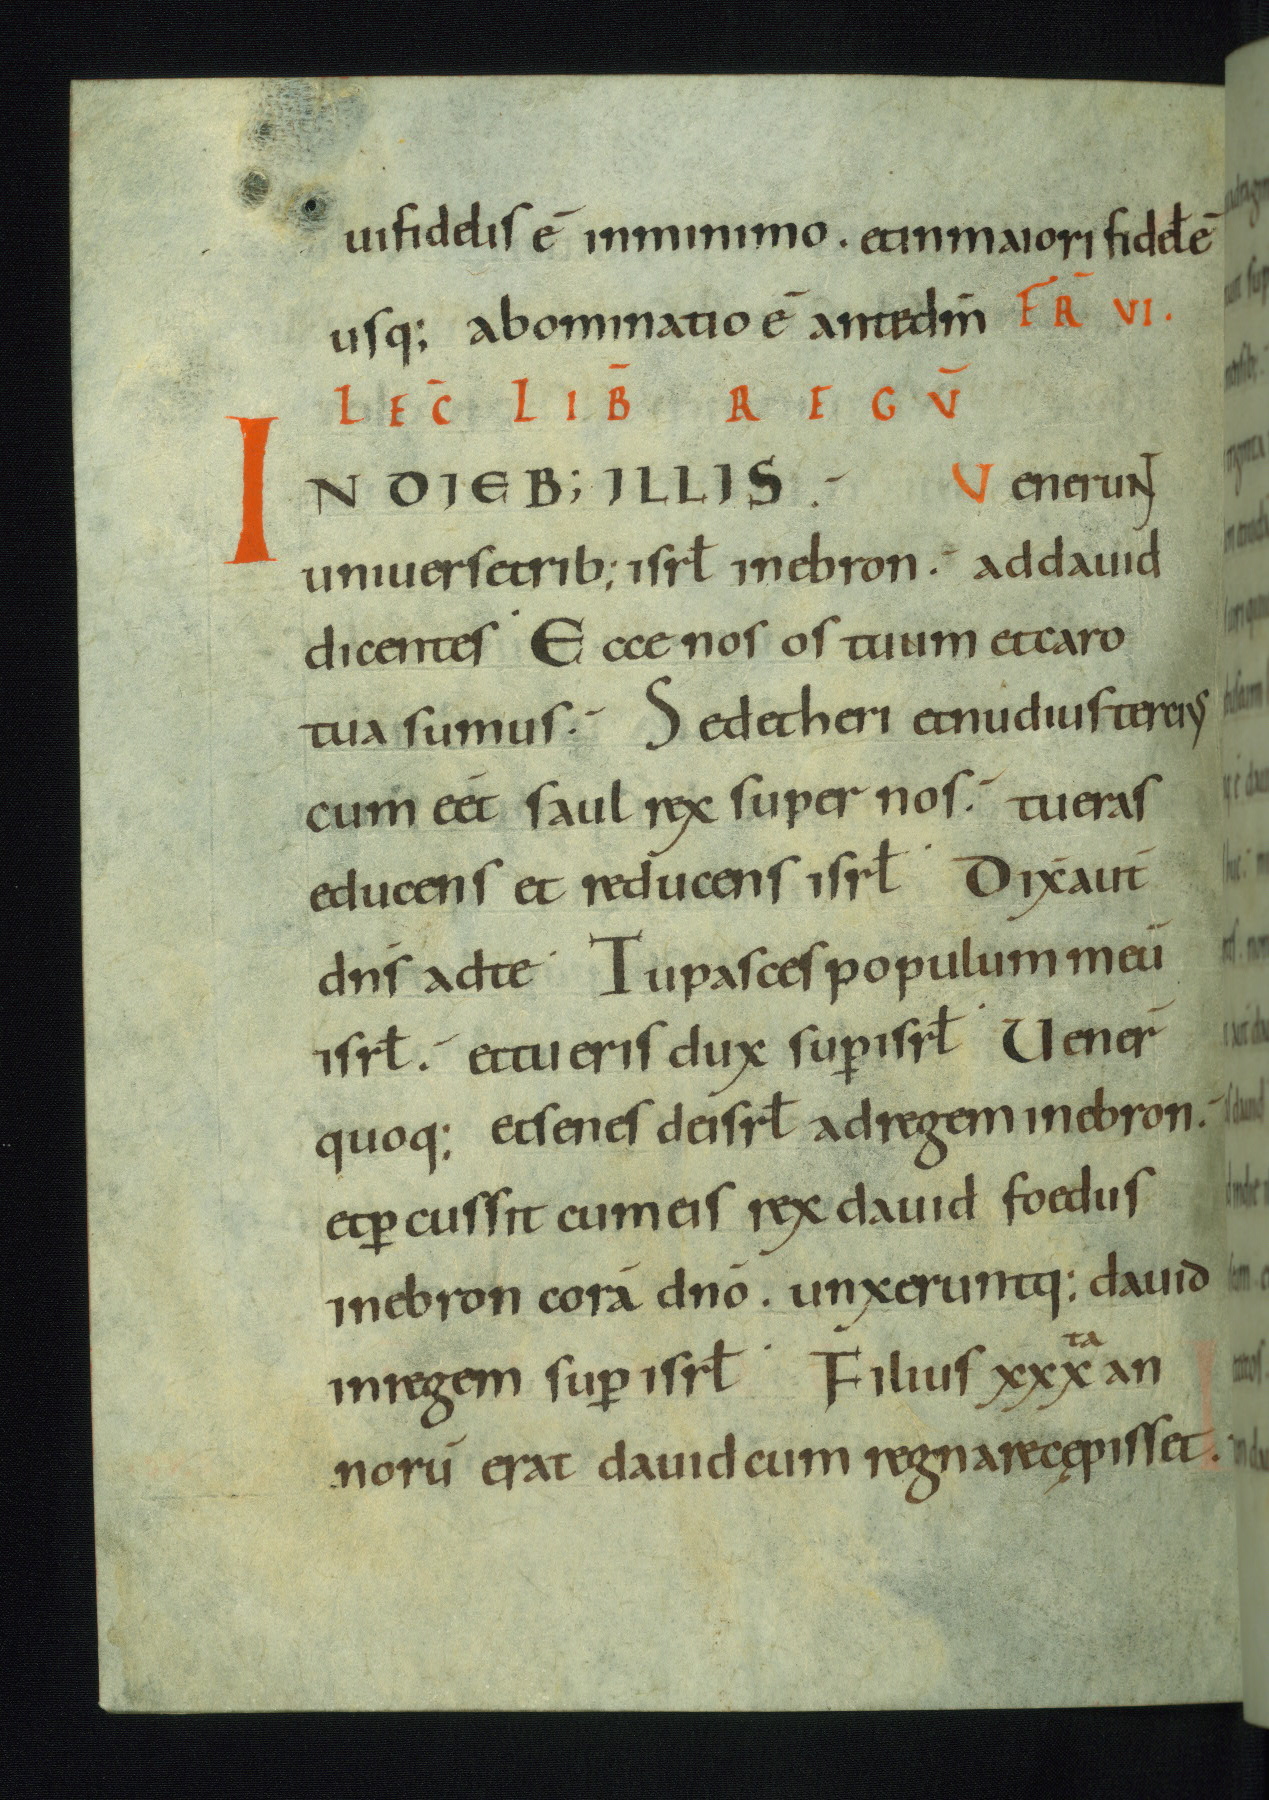 uifidelis ē inminimo . etinmaiori fidel̄ ē
usq; abominatio ē antedm̄ FR̄ VI.
LEC̄ LIB̄ REGŪ
IN DIEB; ILLIS .- Venerunt
uniuersetrib; isrł inebron .- addauid
dicentes · Ecce nos os tuum etcaro
tua sumus .- Sedetheri etnudiustercius
cum eēt saul rex super nos .- tueras
educens et reducens isrł · Dix̄ aut̄
dn̄s adte · Tupasces populum meū
isrł .- ettu eris dux suꝑ isrł · Uener̄
quoq; etsenes deisrł adregem inebron .-
etꝑcussit cumeis rex dauid foedus
inebron corā dnō . unxeruntq; dauid
inregem suꝑ isrł · Filius xxx ta an
norū erat dauid cum regnarecępisset .